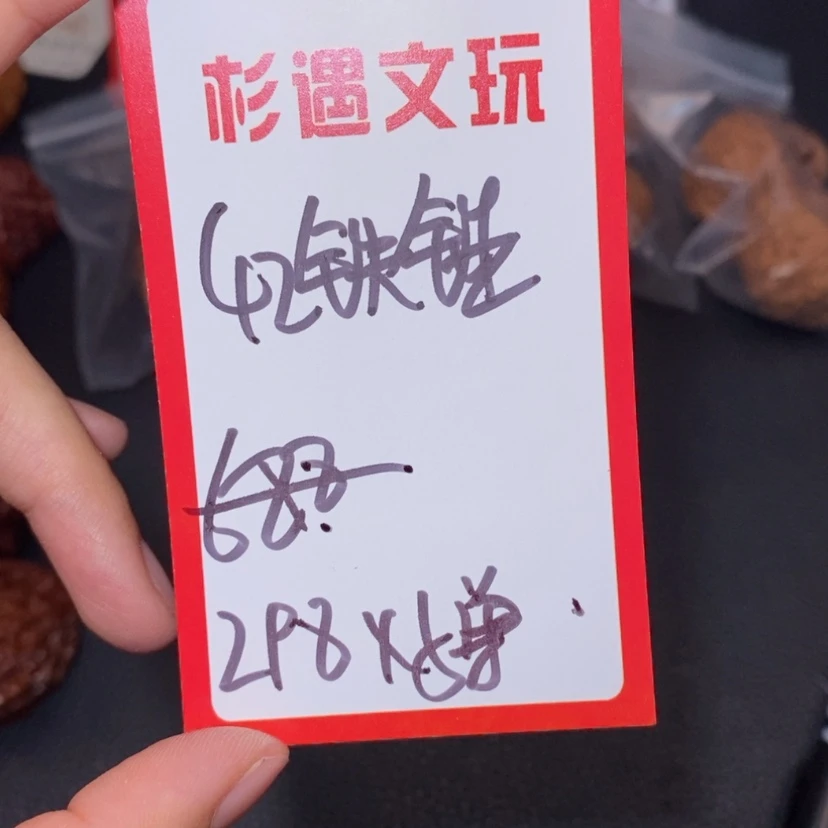 杉遇文玩
42铁锉
688
298 X 6单